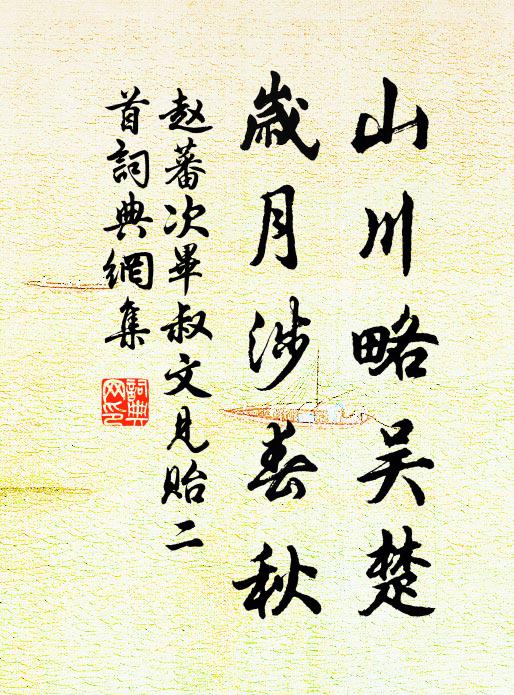 山川略吴楚
岁月涉春秋
赵蕃次畢叔文見貽二
首詞典網集
詞典
网印